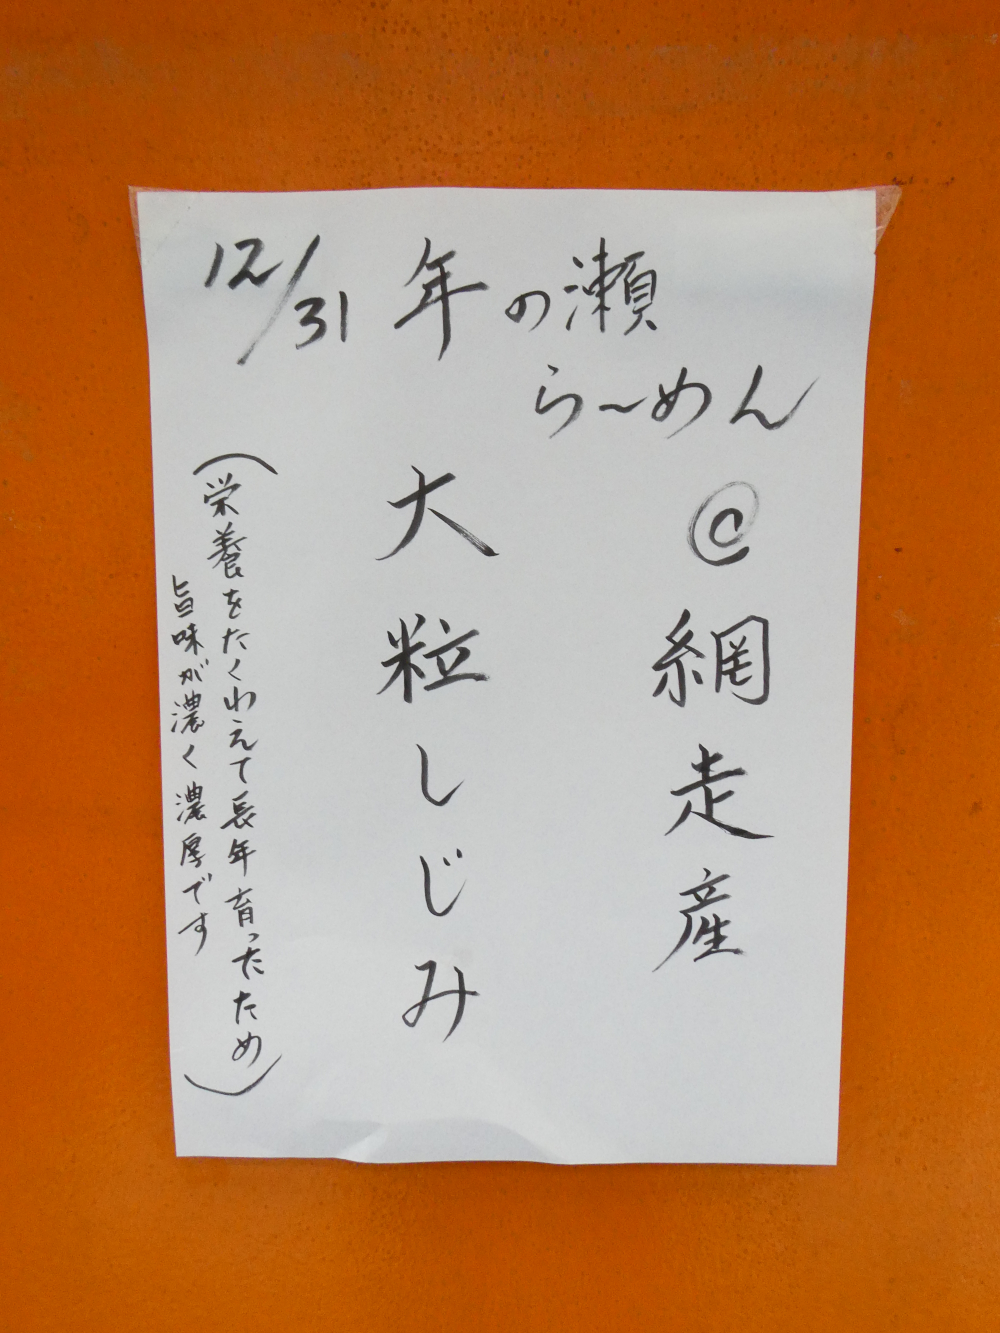 12/31 年の瀬
ら〜めん
@網走産
大粒しじみ
(栄養をたくわえて長年育ったため
旨味が濃く濃厚です)